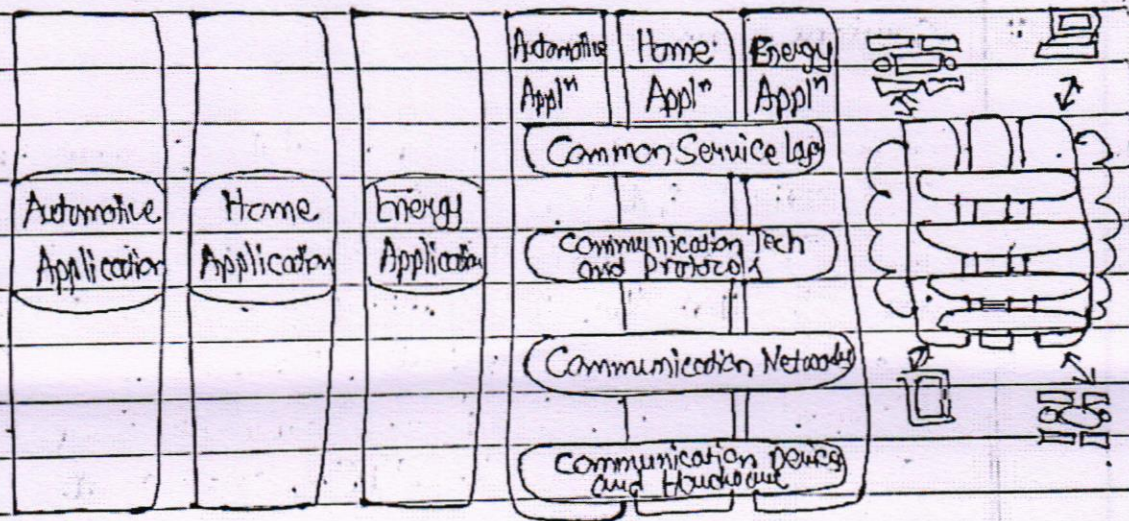 Automotive
Application
Home
Application
Energy
Application
Automotive
Appl^n
Home
Appl^n
Energy
Appl^n
Common Service
Communication Tech
and Protocols
Communication Networks
Communication Device
and Hardware